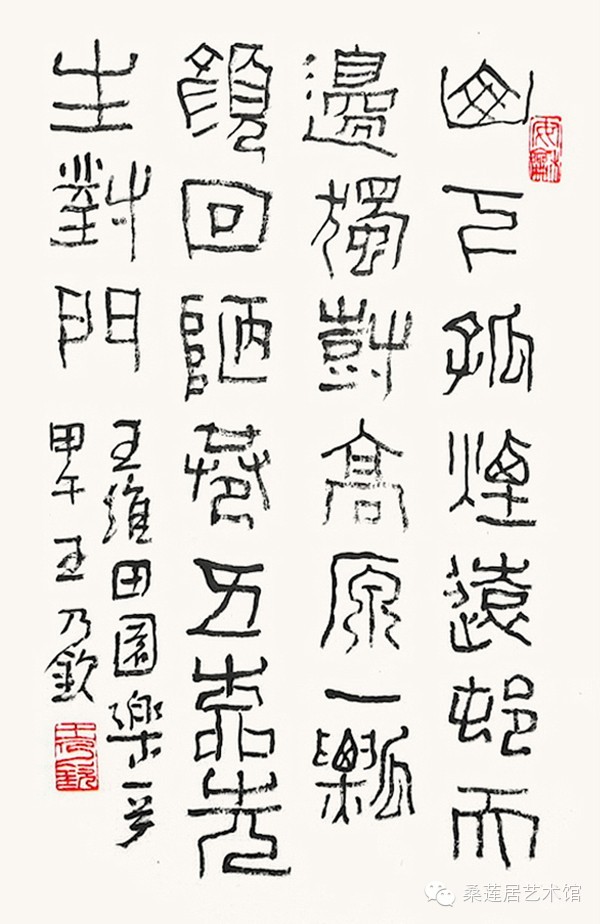 山下孤煙遠邨天
邊獨尌高原一瓢
顏回陋巷五柳先
生對門
王維田園樂一首
甲午王乃欽
桑莲居艺术馆